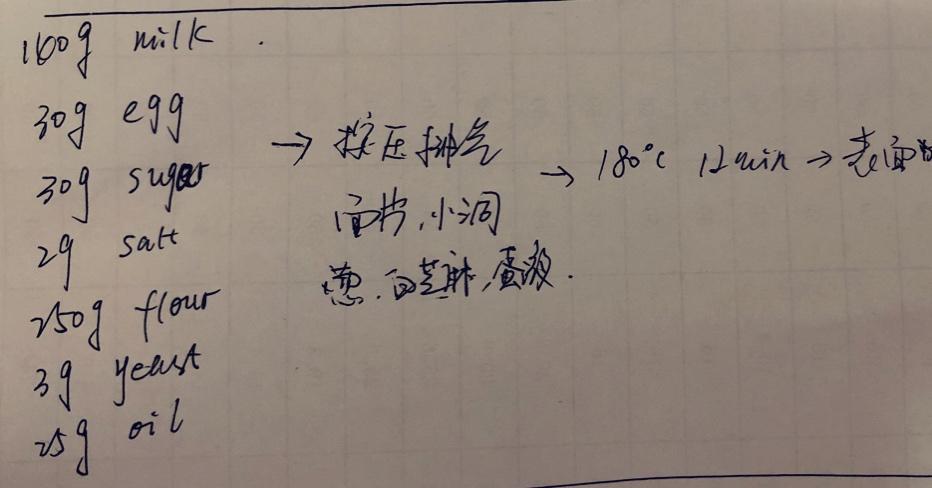 160g milk
30g egg
30g sugar
2g salt
250g flour
3g yeast
25g oil
→ 按压排气
面片,小洞
葱,白芝麻,蛋液.
→ 180℃ 12min → 表面